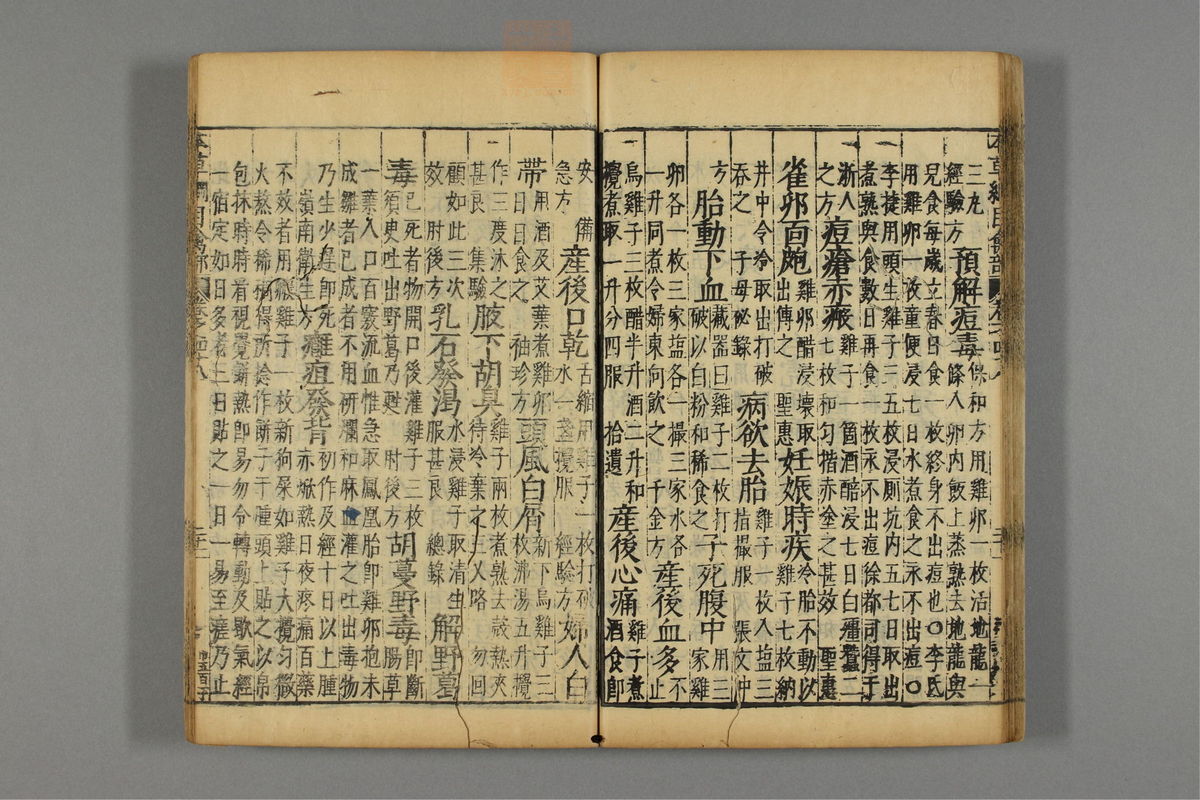 本草綱目禽部 卷之四十八
三九
經驗方
預解痘毒
保和方用雞卵一枚活地龍一
條入卵內飯上蒸熟去地龍與
兒食每歲立春日食一枚終身不出痘也○李氏
用雞卵一枚童便浸七日水煮食之永不出痘○
李捷用頭生雞子三五枚浸厠坑内五七日取出
煮熟與食數日再食一枚永不出痘徐都司得于
浙人
之方
痘瘡赤瘢
雞子一箇酒醅浸七日白殭蠶二
七枚和勻揩赤塗之甚效 聖惠
雀卵面皰
雞卵醋浸壞取
出傅之 聖惠
妊娠時疾
令胎不動以
雞子七枚納
井中令冷取出打破
吞之 子母秘錄
病欲去胎
雞子一枚入塩三
指撮服 張文仲
方
胎動下血
藏器曰雞子二枚打
破以白粉和稀食之
子死腹中
用三
家雞
卵各一枚三家塩各一撮三家水各
一升同煮令婦東向飲之 千金方
產後血多
不
止
烏雞子三枚醋半升酒二升和
攪煮取一升分四服 拾遺
產後心痛
雞子煮
酒食即
安 備
急方
產後口乾
舌縮用雞子一枚打破
水一盞攪服 經驗方
婦人白
帶
用酒及艾葉煮雞卵
日日食之 袖珍方
頭風白屑
新下烏雞子三
枚沸湯五升攪
作三度沐之
甚良 集驗
腋下胡臭
雞子兩枚煮熟去殼熱夾
待冷棄之三叉路 勿回
顧如此三次
效 肘後方
乳石發渴
水浸雞子取清生
服甚良 總錄
解野葛
毒
已死者物開口後灌雞子三枚
須臾吐出野葛乃甦 肘後方
胡蔓野毒
即斷
腸草
一葉入口百竅流血惟急取鳳凰胎即雞卵抱未
成雛者已成者不用研爛和麻油灌之吐出毒物
乃生少遲即死
嶺南衛生方
癰疽發背
初作及經十日以上腫
赤焮熱日夜疼痛百藥
不效者用毈雞子一枚新狗屎如雞子大攪勻微
火熬令稀稠得所捻作餅子于腫頭上貼之以帛
包抹時時看視覺餅熱即易勿令轉動及歇氣經
一宿定如日多者三日貼之一日一易至瘥乃止
本草綱目禽部 卷之四十八